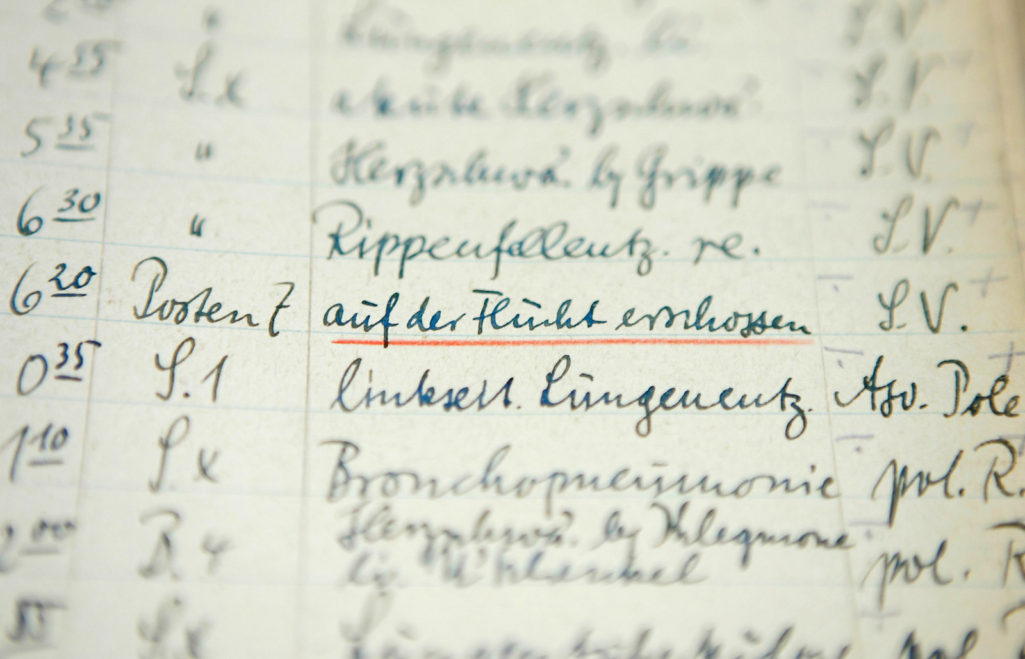 4 55 S. x akute Herzschwä. S.V.
5 35 " Herzschwä. by Grippe S.V.
6 30 " Rippenfellentz. re. S.V.
6 20 Posten 7 auf der Flucht erschossen S.V.
0 35 S.1 linkseit. Lungenentz. Aso. Pole
1 10 S. x Bronchopneumonie pol. R.
2 00 B. 4 Herzschwä. by Phlegmone pol. R
li. U'schenkel
55 S. x pol